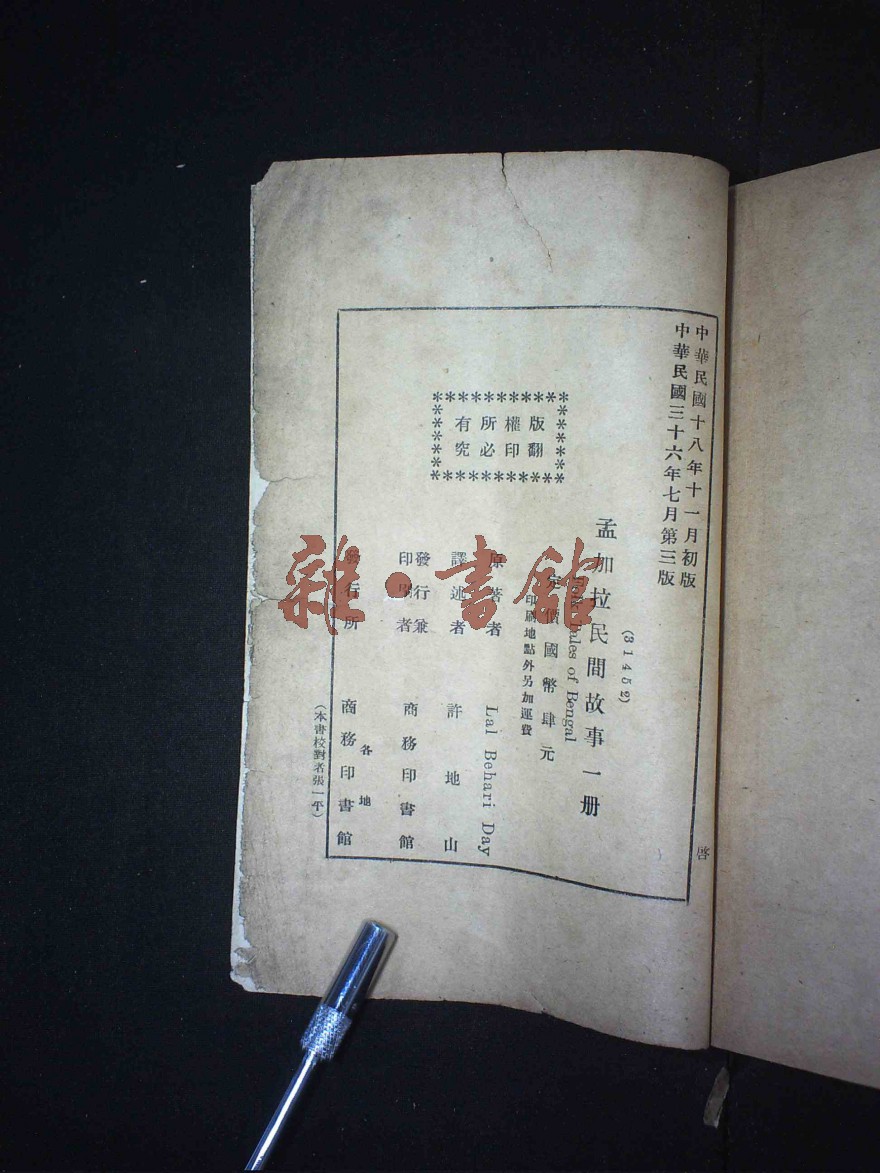 中華民國十八年十一月初版
中華民國三十六年七月第三版
(31452)
孟加拉民間故事一册
Folk Tales of Bengal
定價國幣肆元
印刷地點外另加運費
版權所有
翻印必究
原著者 Lal Behari Day
譯述者 許地山
發行兼印刷者 商務印書館
發行所 各地商務印書館
(本書校對者張一平)
啓
雜·書館